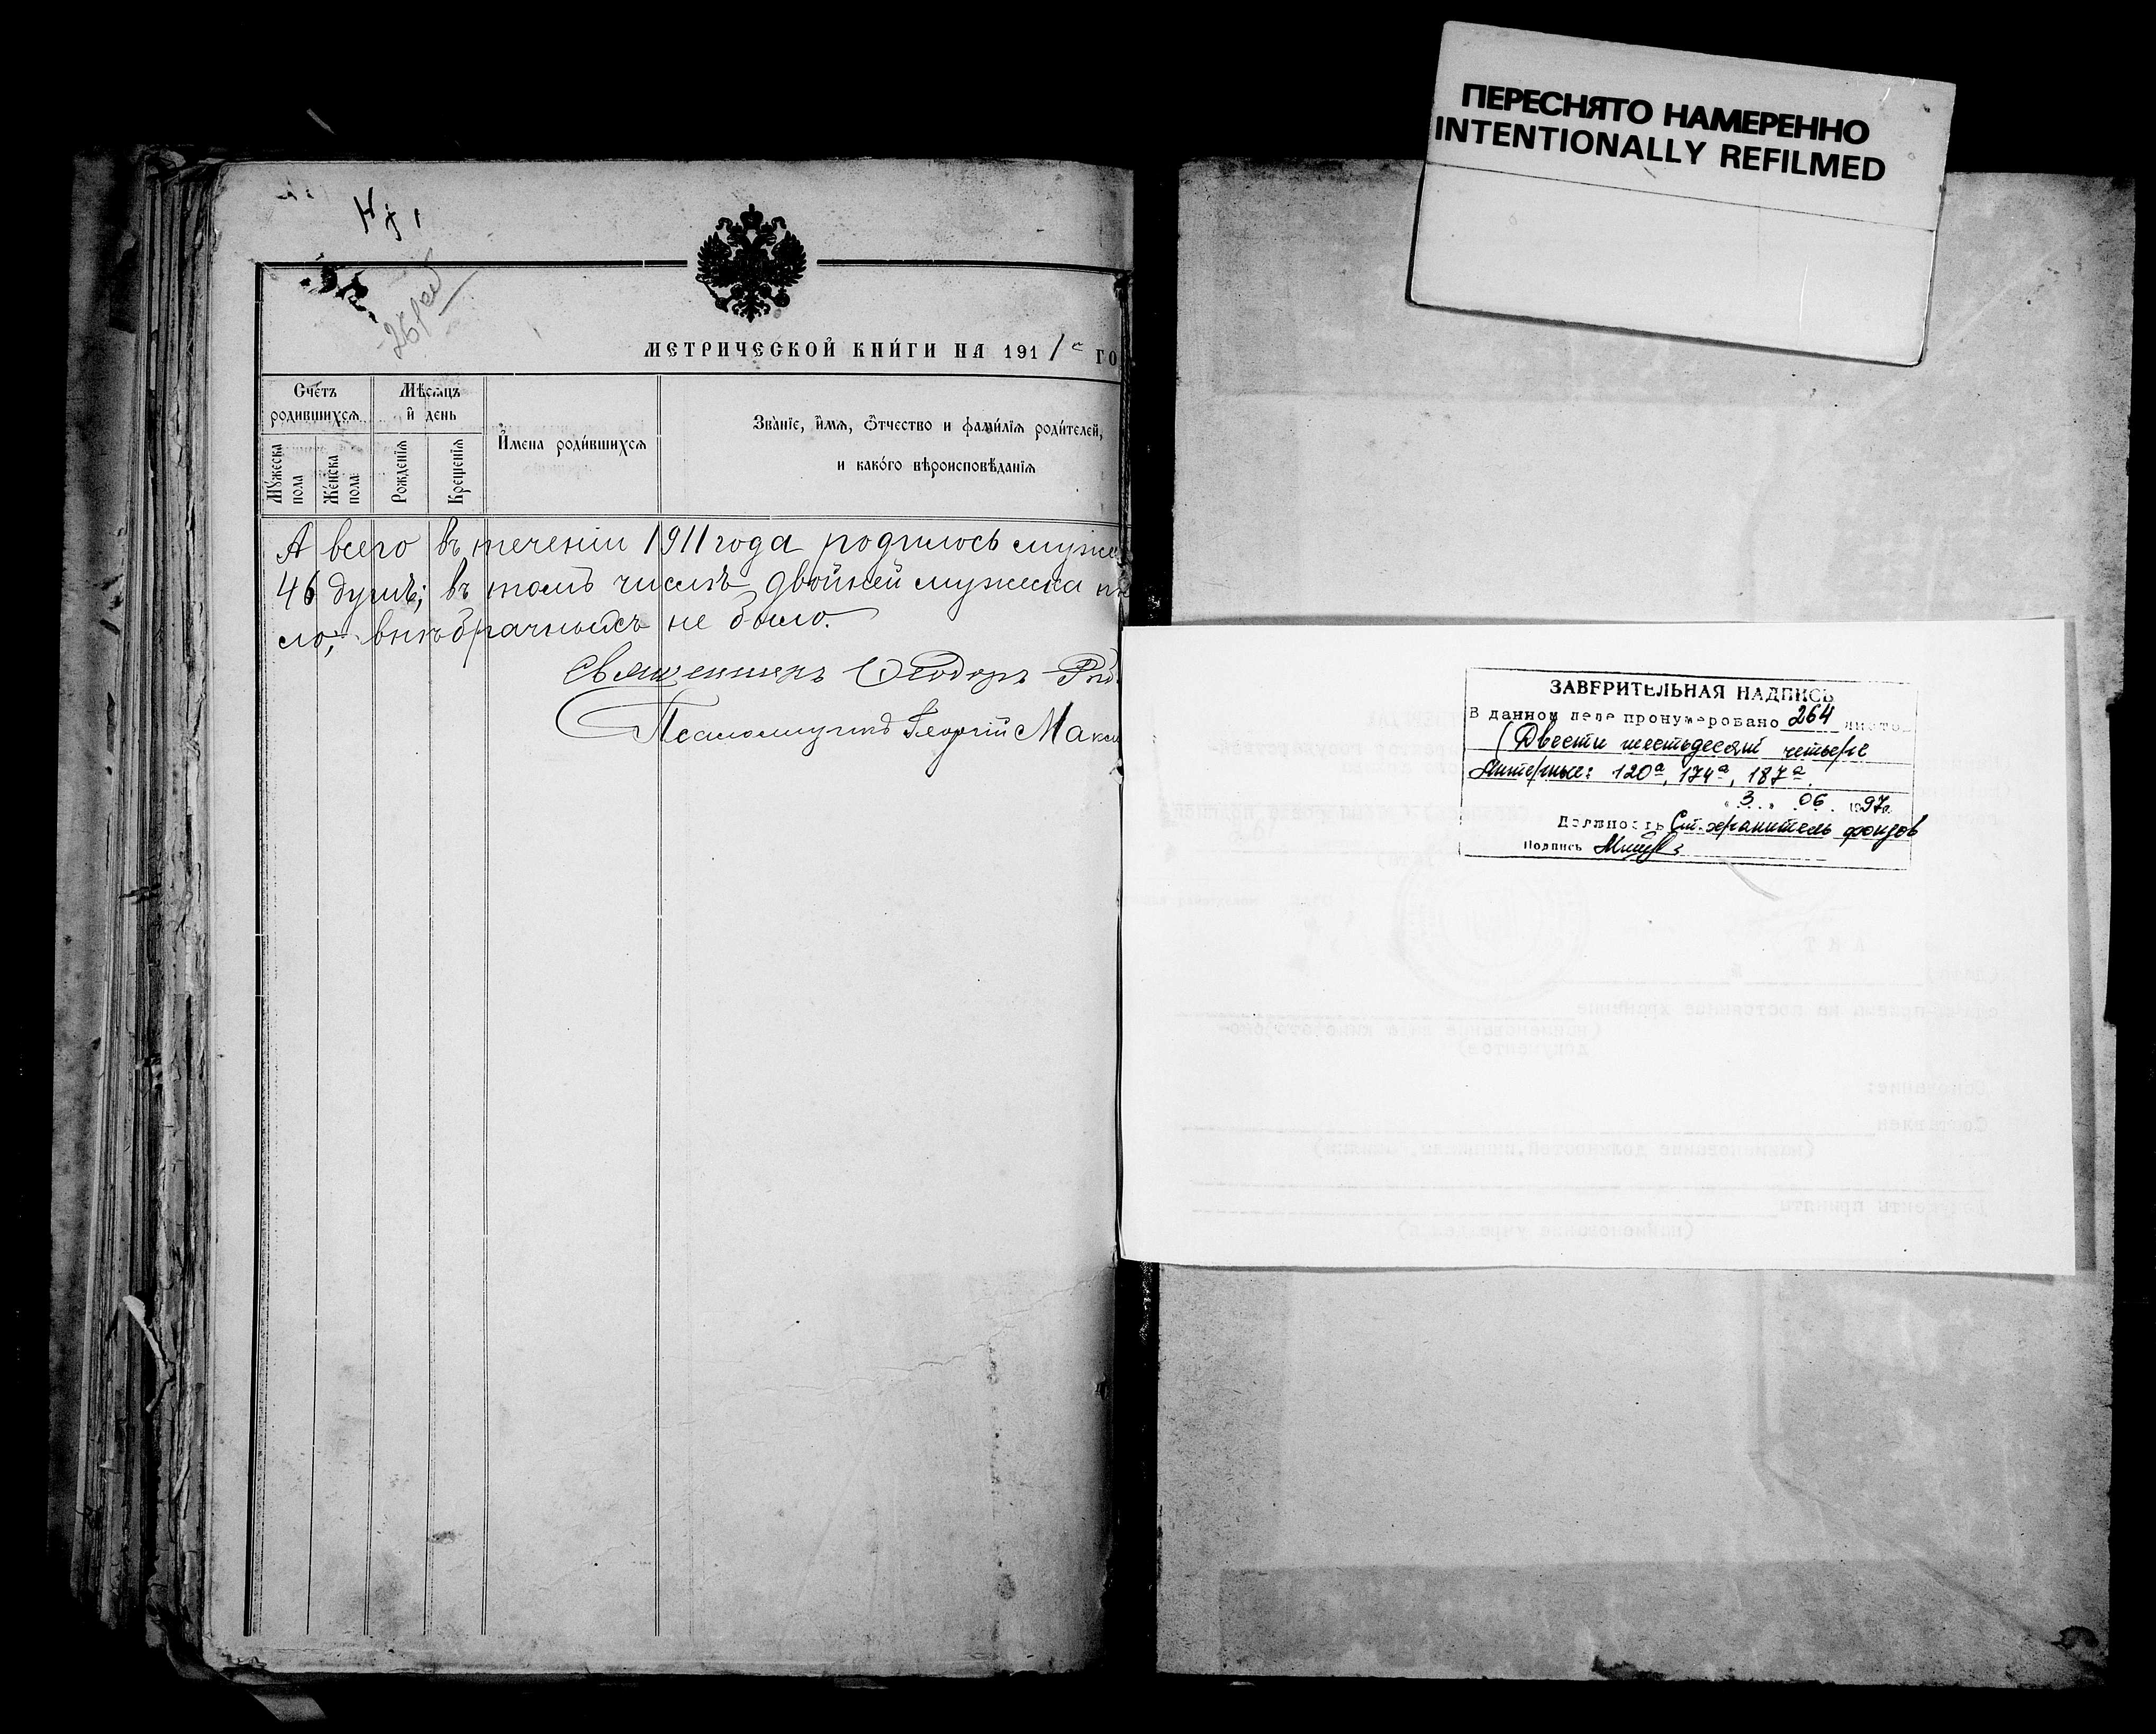 ПЕРЕСНЯТО НАМЕРЕННО
INTENTIONALLY REFILMED
МЕТРИЧЕСКОЙ КНИГИ НА 1911 ГО
Счетъ родившихся
Мѣсяцъ и день
Мужеска пола
Женска пола
Рожденія
Крещенія
Имена родившихся
Званіе, имя, отчество и фамилія родителей,
и какого вѣроисповѣданія
А всего въ теченіи 1911 года родилось муже
46 душъ; въ томъ числѣ двойней мужеска
ло, внѣбрачныхъ не было.
Священникъ Ѳеодоръ
Псаломщикъ Георгій Макс
ЗАВЕРИТЕЛЬНАЯ НАДПИСЬ
В данном деле пронумеровано 264 листо
(Двести шестьдесят четыре
Литерные: 120а, 174а, 187а.
"3" 06 1997г.
Должность Ст. хранитель фондов
Подпись